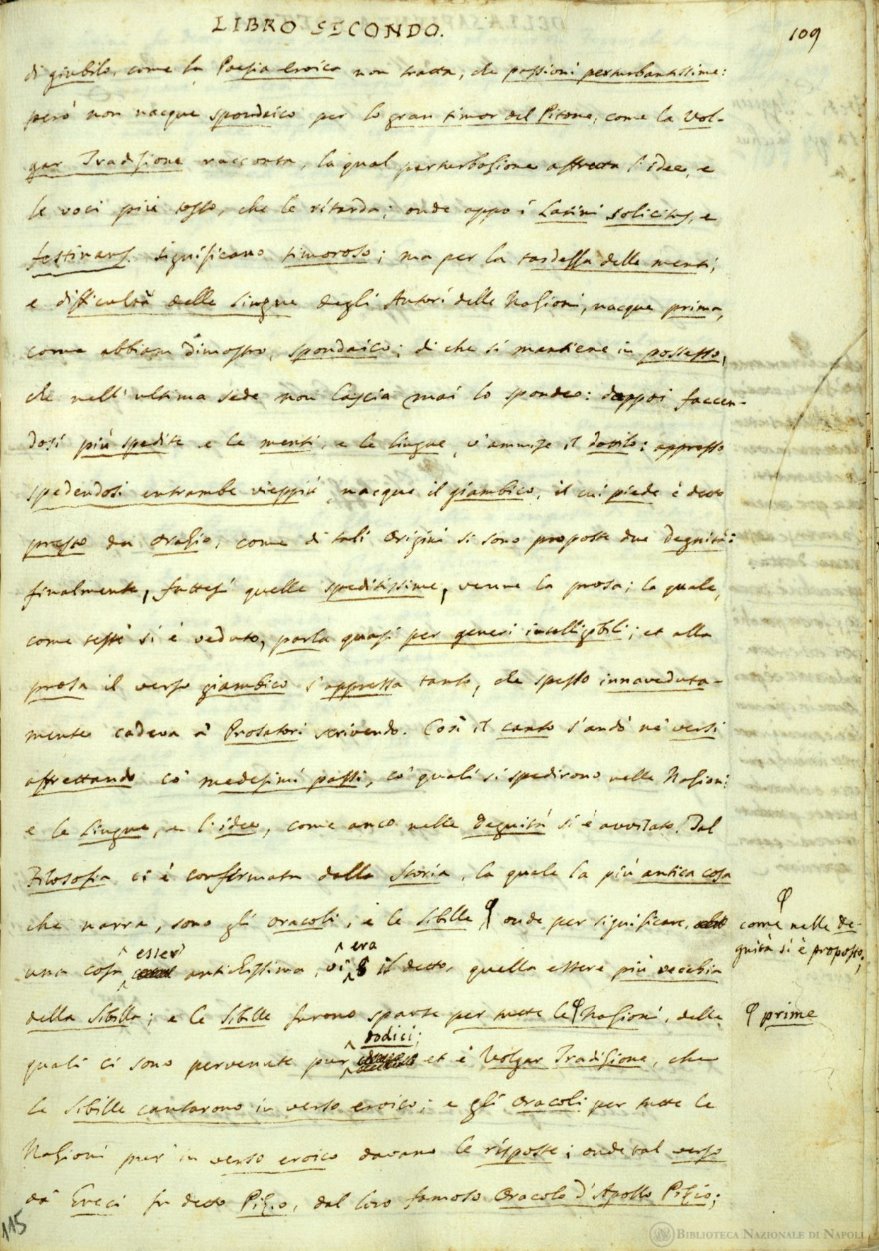 LIBRO SECONDO.
109
di giubilo, come la Poesia Eroica non tratta, che passioni perturbantissime:
però non nacque spondaico per lo gran timor del Pitone, come la Vol-
gar Tradizione racconta, la qual perturbazione affretta l'idee, e
le voci più tosto, che le ritarda; onde appo i Latini solicitus, e
festinans significano timoroso; ma per la tardezza delle menti,
e difficultà delle Lingue degli Autori delle Nazioni, nacque prima,
come abbiam dimostro, spondaico; di che si mantiene in possesso,
che nell'ultima sede non lascia mai lo spondeo: dappoi faccen-
dosi più spedite e le menti, e le lingue, v'ammise il dattilo: appresso
spedendosi entrambe vieppiù, nacque il giambico, il cui piede è detto
presto da Orazio, come di tali Origini si sono proposte due Degnità:
finalmente, fattesi quelle speditissime, venne la prosa; la quale,
come testè si è veduto, parla quasi per generi intelligibili; et alla
prosa il verso giambico s'appressa tanto, che spesso innaveduta-
mente cadeva a' Prosatori scrivendo. Così il canto s'andò ne' versi
affrettando co' medesimi passi, co' quali si spedirono nelle Nazioni
e le Lingue, e l'idee, come anco nelle Degnità si è avvisato. Tal
Filosofia ci è confermata dalla Storia, la quale la più antica cosa
che narra, sono gli oracoli, e le Sibille φ onde per significare,
φ come nelle De-
gnità si è proposto;
una cosa esser antichissima, vi era il detto, quella essere più vecchia
della Sibilla; e le Sibille furono sparse per tutte le φ Nazioni, delle
φ prime
quali ci sono pervenute pur dodici; et è Volgar Tradizione, che
le Sibille cantarono in verso eroico; e gli Oracoli per tutte le
Nazioni pur' in verso eroico davano le risposte; onde tal verso
da' Greci fu detto Pizio, dal loro famoso Oracolo d'Apollo Pizio;
115
BIBLIOTECA NAZIONALE DI NAPOLI